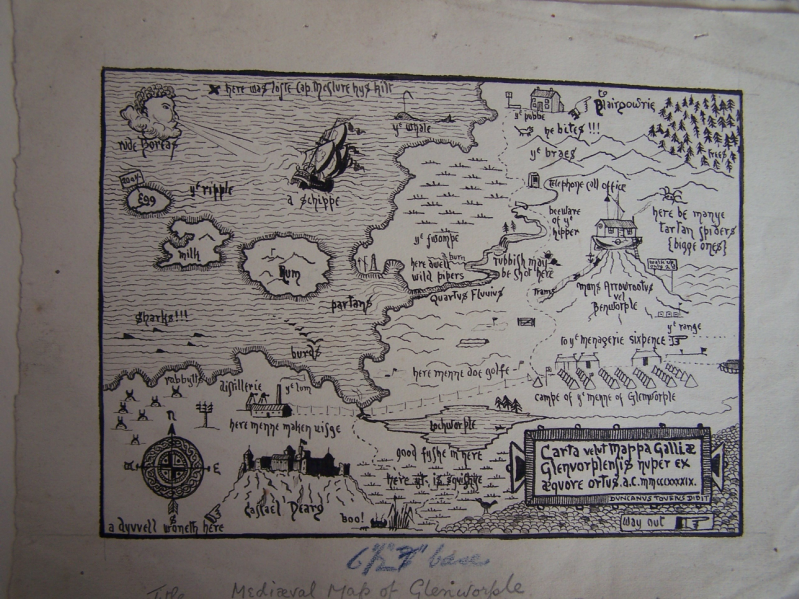 here was loste Cap. McClure hys kilt
rude Boreas
ye whale
ye pubbe
to Blairpowrie
he bites!!!
ye braes
trees
egg
ye ripple
a schippe
Telephone call office
beeware
of ye
kipper
here be manye
tartan spiders
{bigge ones}
milk
Rum
ye swompe
here dwell
wild pipers
burn
rubbish may
be shot here
Quartus Fluvius
Trams
Mons Arrowrootus
vel
Benworple
partans
sharks!!!
burds
ye range
to ye menagerie sixpence
here menne doe golfe
campe of ye menne of Glenworple
rabbytts
distillerie
ye lum
here menne maken uisge
Lochworple
good fyshe in here
here yt. is squishie
N
E
Castael Dearg
Boo!
a dyvvell woneth here
Carta velut Mappa Galliæ
Glenvorplensis nuper ex
æquore ortus. A.C. MMCCCXXXIX.
DUNCANUS TOVENS DIDIT
way out
6½" base
Mediæval Map of Glenworple